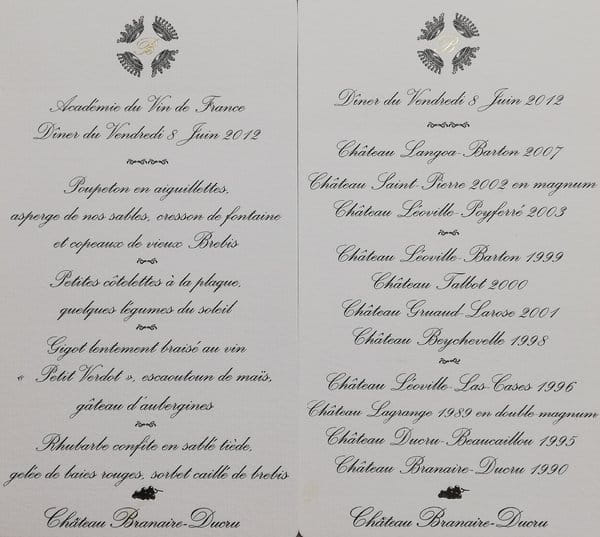 B
Académie du Vin de France
Dîner du Vendredi 8 Juin 2012
Poupeton en aiguillettes,
asperge de nos sables, cresson de fontaine
et copeaux de vieux Brebis
Petites côtelettes à la plaque,
quelques légumes du soleil
Gigot lentement braisé au vin
« Petit Verdot », escaoutoun de maïs,
gâteau d'aubergines
Rhubarbe confite en sablé tiède,
gelée de baies rouges, sorbet caillé de brebis
Château Branaire-Ducru
B
Dîner du Vendredi 8 Juin 2012
Château Langoa-Barton 2007
Château Saint-Pierre 2002 en magnum
Château Léoville-Poyferré 2003
Château Léoville-Barton 1999
Château Talbot 2000
Château Gruaud-Larose 2001
Château Beychevelle 1998
Château Léoville-Las-Cases 1996
Château Lagrange 1989 en double magnum
Château Ducru-Beaucaillou 1995
Château Branaire-Ducru 1990
Château Branaire-Ducru